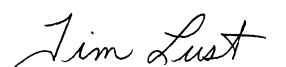 Tim Lust